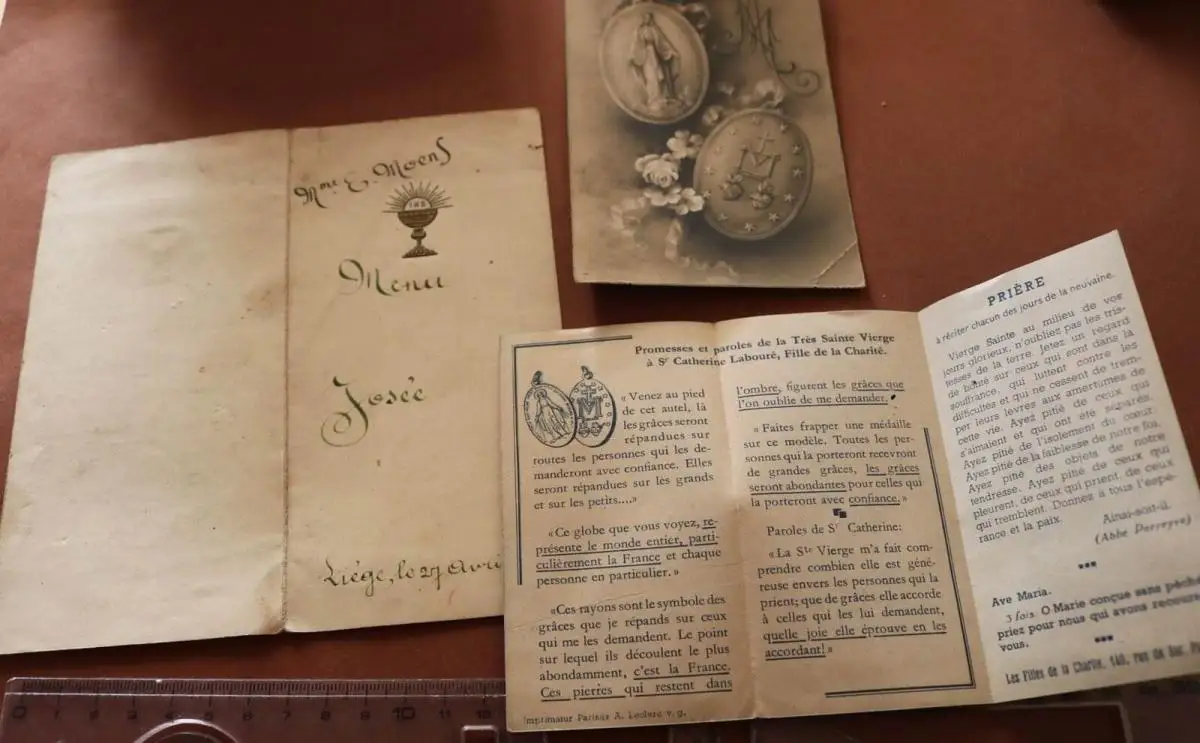 Mme E. Moens
IHS
Menu
Josée
Liége, le 27 Avri
Promesses et paroles de la Très Sainte Vierge
à Sr Catherine Labouré, Fille de la Charité.
« Venez au pied
de cet autel, là
les grâces seront
répandues sur
toutes les personnes qui les de-
manderont avec confiance. Elles
seront répandues sur les grands
et sur les petits....»
«Ce globe que vous voyez, re-
présente le monde entier, parti-
culièrement la France et chaque
personne en particulier. »
«Ces rayons sont le symbole des
grâces que je répands sur ceux
qui me les demandent. Le point
sur lequel ils découlent le plus
abondamment, c'est la France.
Ces pierres qui restent dans
Imprimatur Parisiis A. Leclerc v. g.
l'ombre, figurent les grâces que
l'on oublie de me demander.
« Faites frapper une médaille
sur ce modèle. Toutes les per-
sonnes qui la porteront recevront
de grandes grâces, les grâces
seront abondantes pour celles qui
la porteront avec confiance. »
Paroles de Sr Catherine:
«La Ste Vierge m'a fait com-
prendre combien elle est géné-
reuse envers les personnes qui la
prient; que de grâces elle accorde
à celles qui les lui demandent,
quelle joie elle éprouve en les
accordant! »
PRIÈRE
à réciter chacun des jours de la neuvaine.
Vierge Sainte au milieu de vos
jours glorieux, n'oubliez pas les tris-
tesses de la terre. Jetez un regard
de bonté sur ceux qui sont dans la
souffrance, qui luttent contre les
difficultés et qui ne cessent de trem-
per leurs lèvres aux amertumes de
cette vie. Ayez pitié de ceux qui
s'aimaient et qui ont été séparés.
Ayez pitié de l'isolement du cœur.
Ayez pitié de la faiblesse de notre foi.
Ayez pitié des objets de notre
tendresse. Ayez pitié de ceux qui
pleurent, de ceux qui prient, de ceux
qui tremblent. Donnez à tous l'espé-
rance et la paix.
Ainsi-soit-il.
(Abbé Perreyve)
Ave Maria.
3 fois. O Marie conçue sans péché
priez pour nous qui avons recours
vous.
Les Filles de la Charité, 140, rue du Bac,
0 1 2 3 4 5 6 7 8 9 10 11 12 13